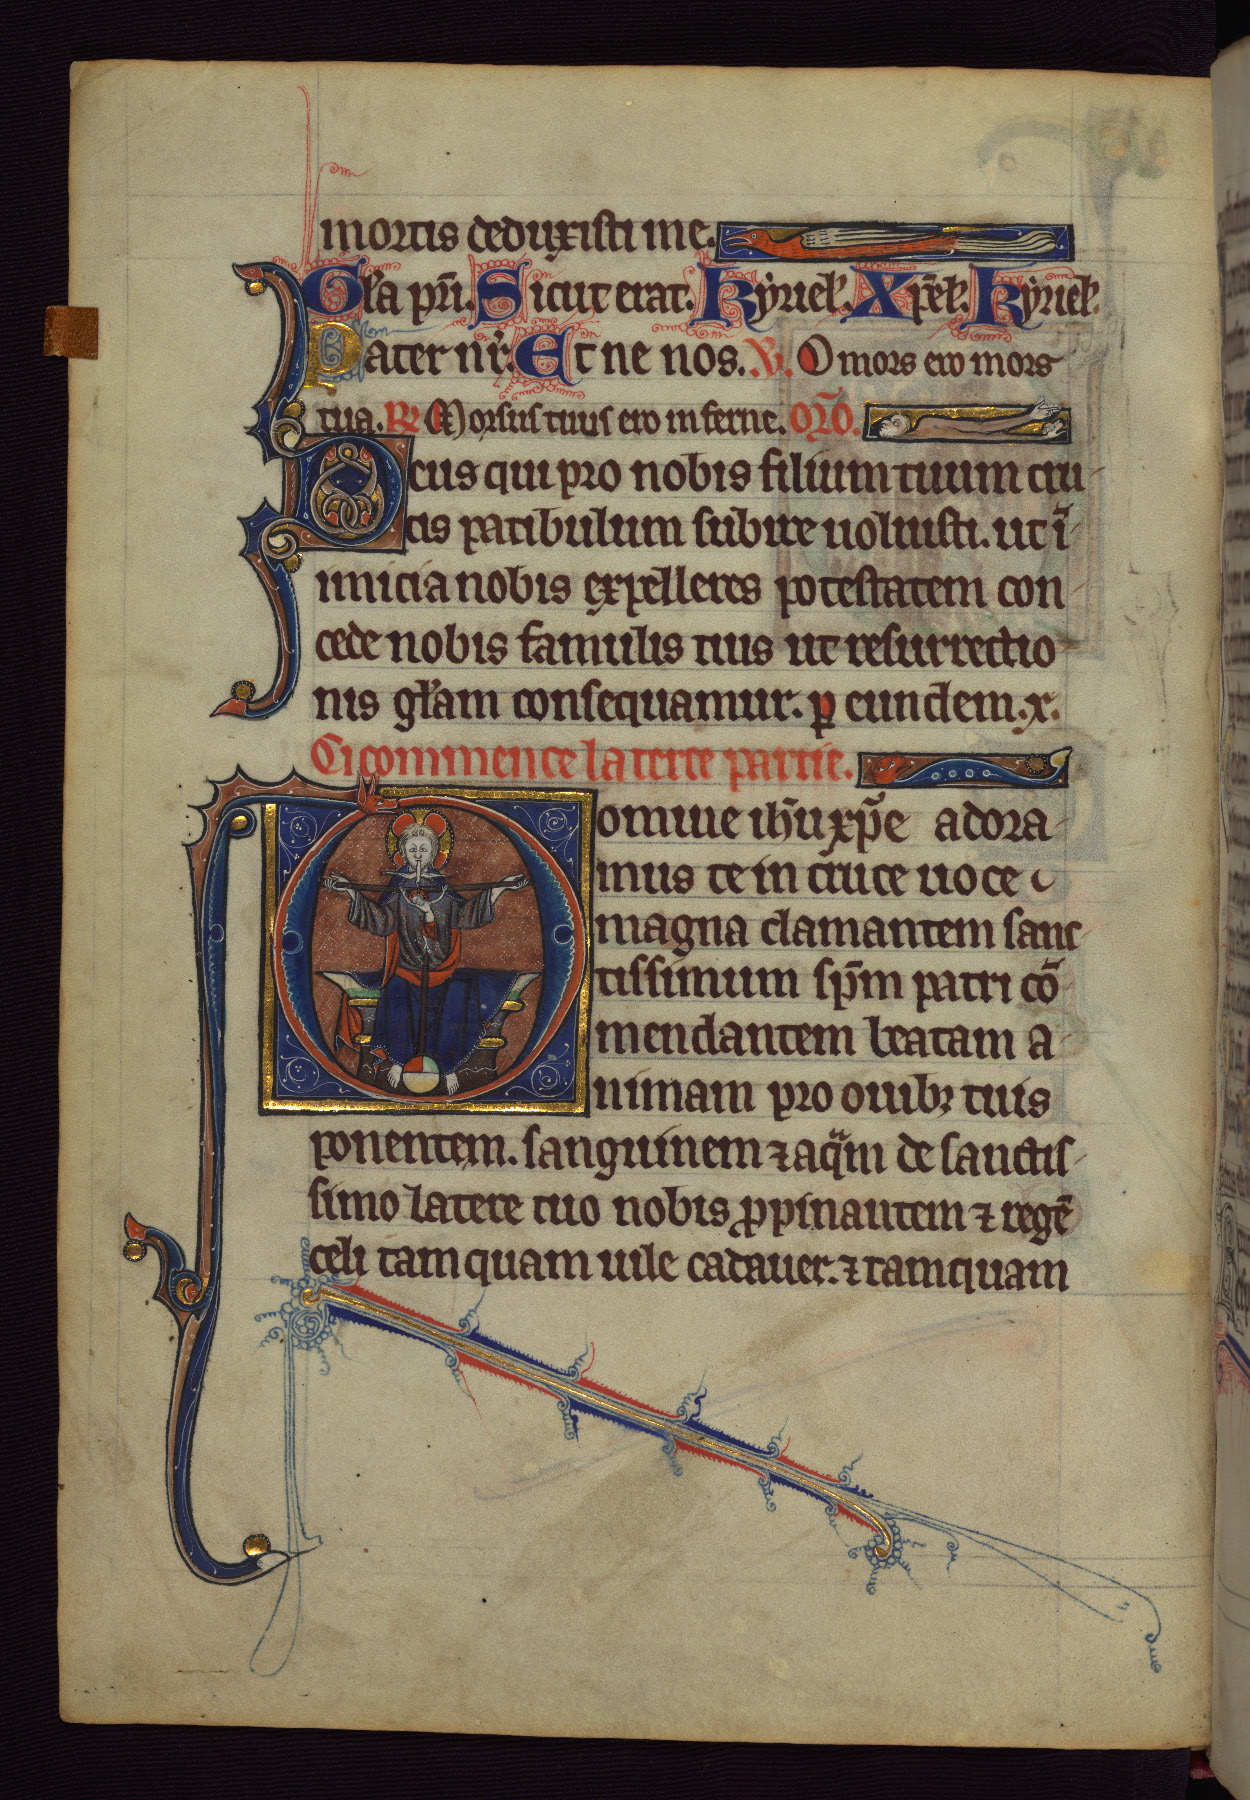 mortis deduxisti me.
Gl̃a pr̃i. Sicut erat. Kyriel̃. Xp̃el̃. Kyriel̃.
Pater nr̃. Et ne nos. V. O mors ero mors
tua. R Morsus tuus ero inferne. OR̃O.
Deus qui pro nobis filium tuum cru
cis patibulum subire uoluisti. ut ĩ
imicia nobis expelleres potestatem con
cede nobis famulis tuis ut resurrectio
nis gl̃am consequamur. ꝑ eundem. x.
Ci commence la terce partie.
Domine ih̃u xp̃e adora
mus te in cruce uoce
magna clamantem sanc
tissimum sp̃m patri cõ
mendantem beatam a
nimam pro ouibꝫ tuis
ponentem. sanguinem ⁊ aqͣm de sanctis
simo latere tuo nobis ꝓpinantem ⁊ regẽ
celi tamquam uile cadauer. ⁊ tamquam